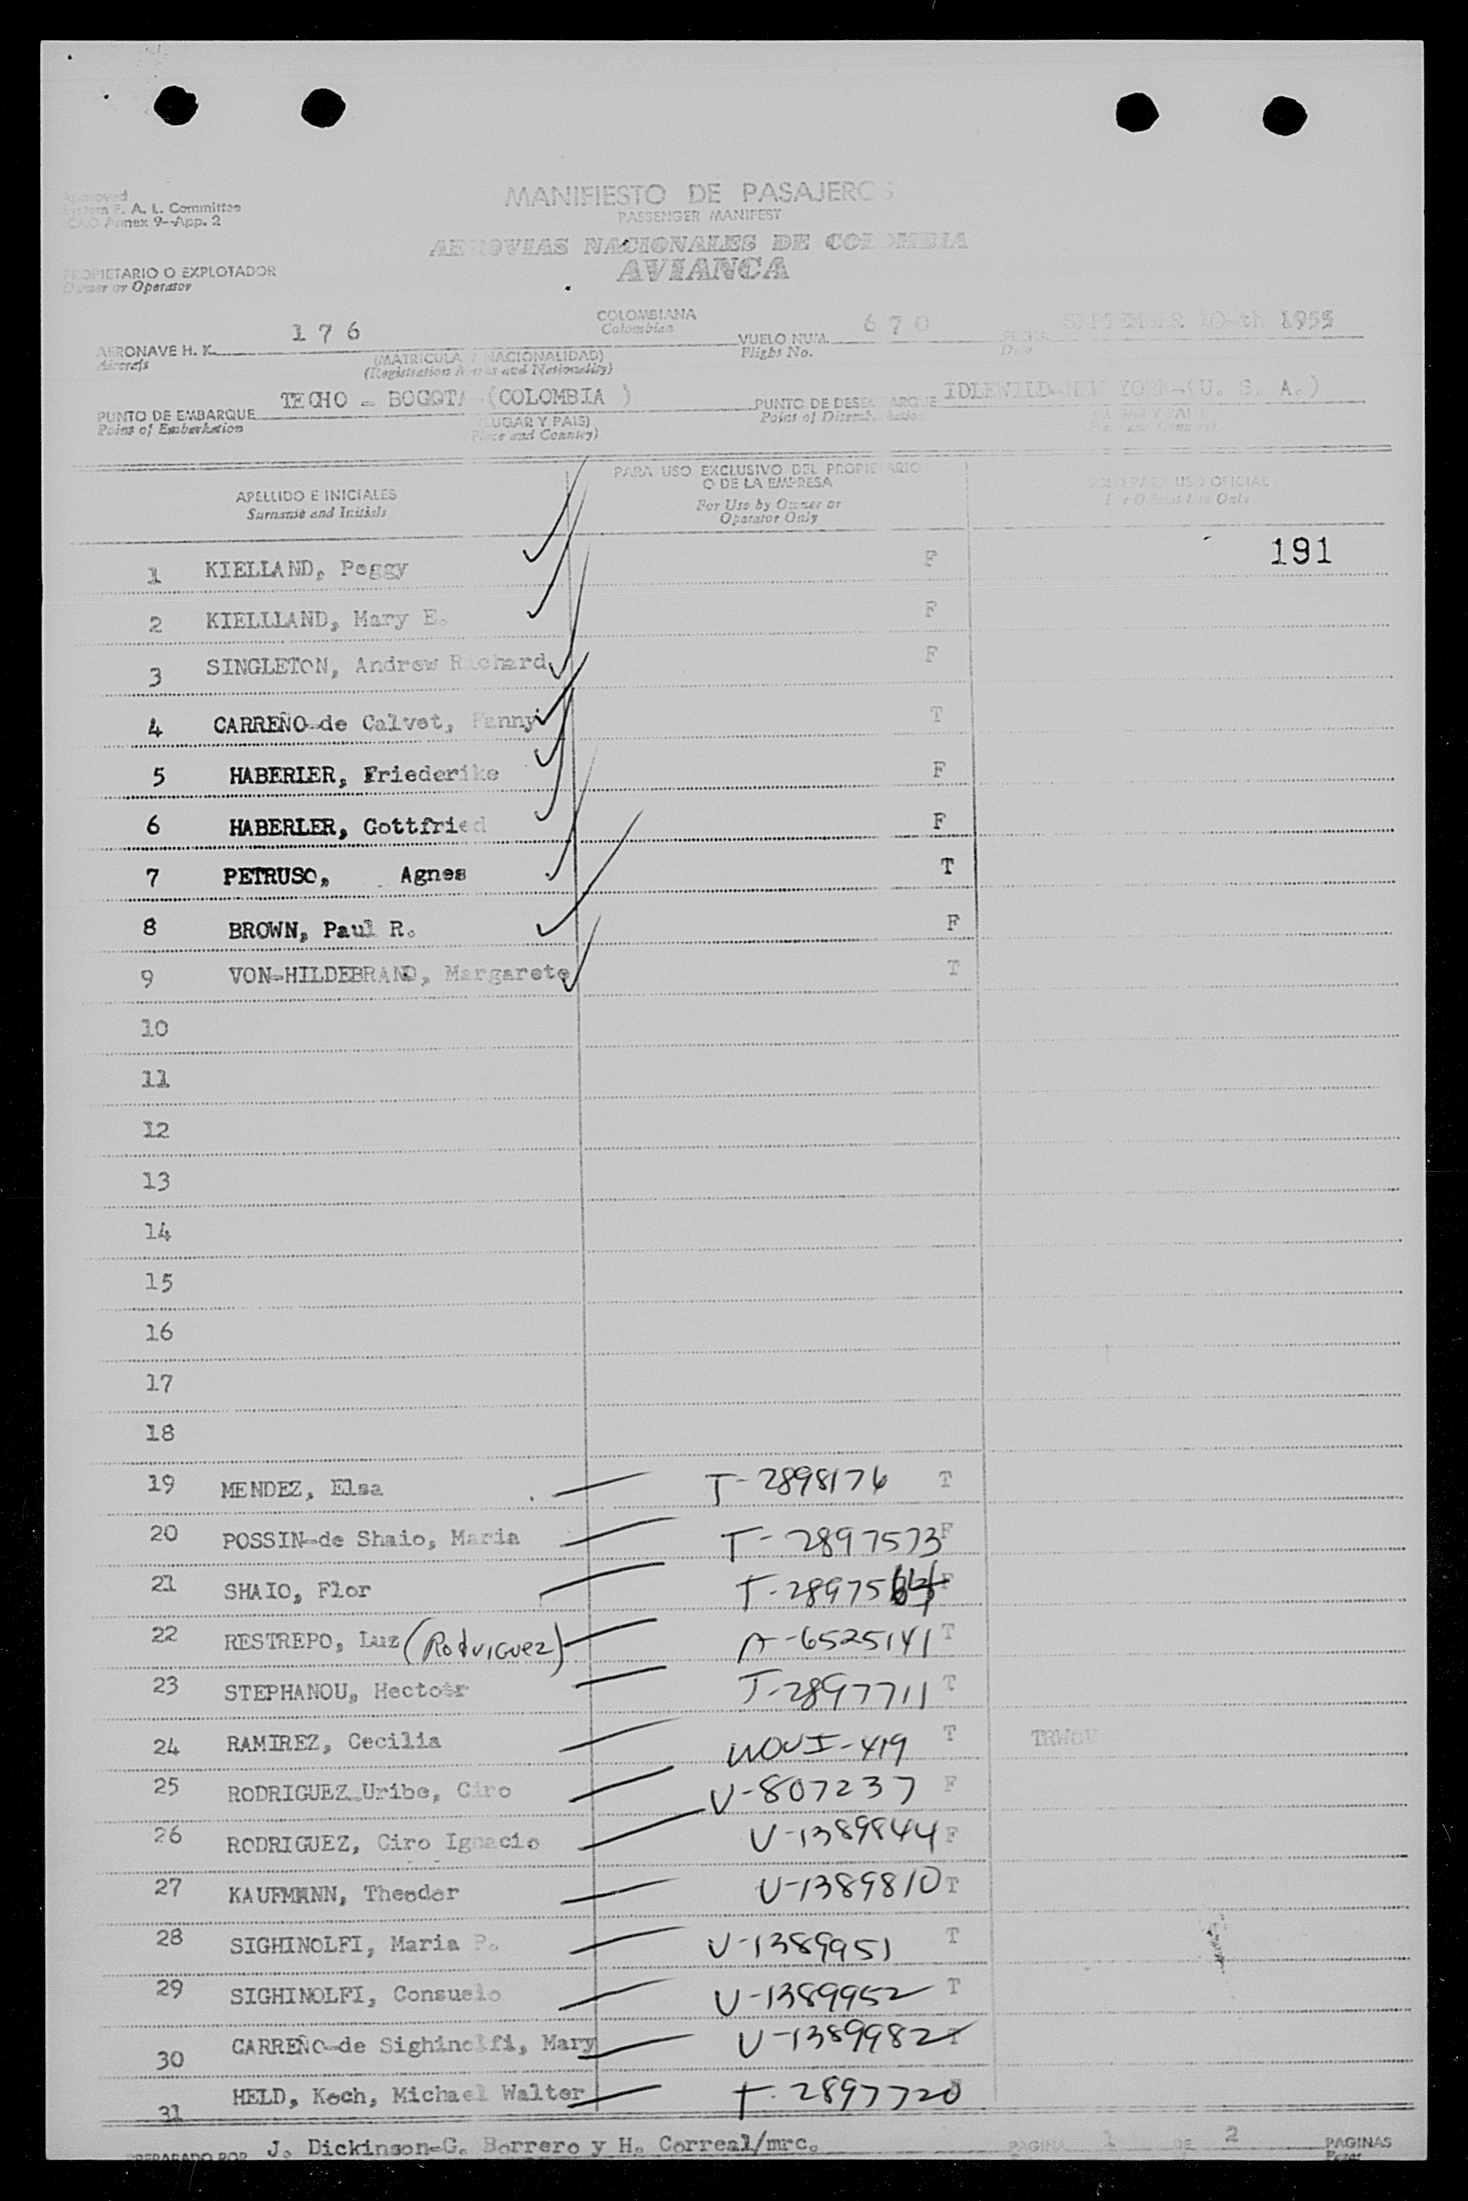 Approved
F. A. L. Committee
Annex 9--App. 2
MANIFIESTO DE PASAJEROS
PASSENGER MANIFEST
AEROVIAS NACIONALES DE COLOMBIA
AVIANCA
PROPIETARIO O EXPLOTADOR
Owner or Operator
COLOMBIANA
Colombian
AERONAVE H. K. 176
Aircraft
(MATRICULA Y NACIONALIDAD)
(Registration Marks and Nationality)
VUELO NUM. 670
Flight No.
SEPTEMBER 10-th 1955
Date
PUNTO DE EMBARQUE TECHO - BOGOTA (COLOMBIA )
Point of Embarkation
(LUGAR Y PAIS)
(Place and Country)
PUNTO DE DESEMBARQUE IDLEWILD-NEW YORK-(U. S. A.)
Point of Disembarkation
APELLIDO E INICIALES
Surname and Initials
PARA USO EXCLUSIVO DEL PROPIETARIO
O DE LA EMPRESA
For Use by Owner or
Operator Only
SOLO PARA USO OFICIAL
For Official Use Only
191
1 KIELLAND, Peggy F
2 KIELLLAND, Mary E. F
3 SINGLETON, Andrew Richard F
4 CARREÑO-de Calvet, Fanny T
5 HABERLER, Friederike F
6 HABERLER, Gottfried F
7 PETRUSO, Agnes T
8 BROWN, Paul R. F
9 VON-HILDEBRAND, Margarete T
10
11
12
13
14
15
16
17
18
19 MENDEZ, Elsa T-2898176 T
20 POSSIN-de Shaio, Maria T-2897573 F
21 SHAIO, Flor T-28975 F
22 RESTREPO, Luz (Rodriguez) A-6525141 T
23 STEPHANOU, Hector T-2897711 T
24 RAMIREZ, Cecilia T
25 RODRIGUEZ-Uribe, Ciro V-807237 F
26 RODRIGUEZ, Ciro Ignacio V-1389844 F
27 KAUFMANN, Theodor V-1389810 T
28 SIGHINOLFI, Maria P. V-1389951 T
29 SIGHINOLFI, Consuelo V-1389952 T
30 CARREÑO-de Sighinolfi, Mary V-1389982 T
31 HELD, Koch, Michael Walter T-2897720
PREPARADO POR J. Dickinson-G. Borrero y H. Correal/mrc.
PAGINA 1 DE 2 PAGINAS